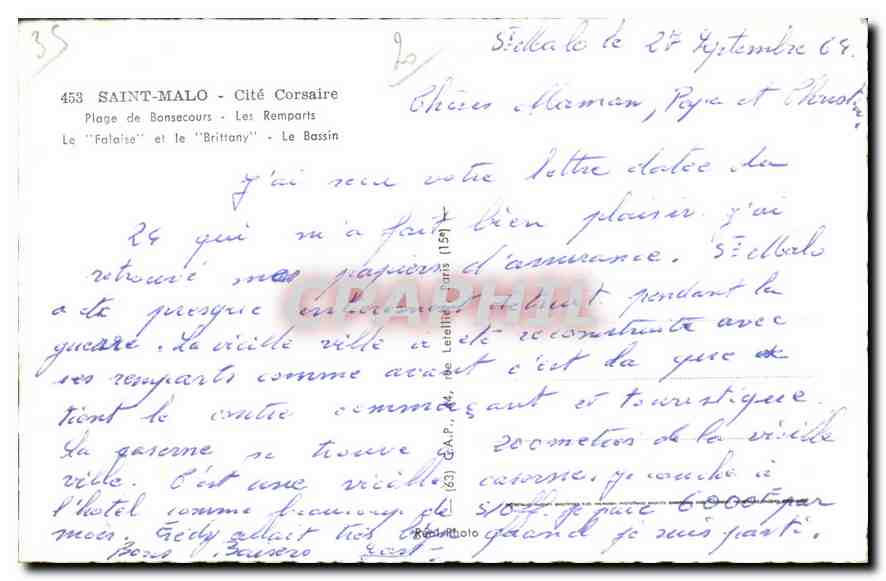 35
20
St Malo le 27 Septembre 64.
453 SAINT-MALO - Cité Corsaire
Plage de Bonsecours - Les Remparts
Le "Falaise" et le "Brittany" - Le Bassin
Chères Maman, Papa et Christin.
J'ai recu votre lettre datée du
24 qui m'a fait bien plaisir. J'ai
retrouvé mes papiers d'assurance. St Malo
a été presque entierement detruit pendant la
guerre. La vieille ville a été reconstruite avec
ses remparts comme avant c'est la que se
tient le centre commerçant et touristique.
La caserne se trouve a 200 metres de la vieille
ville. C'est une vieille caserne. je couche à
l'hotel comme beaucoup de S/Off. je paie 6000F par
mois. Fredy allait très bien quand je suis parti.
Bons Baisers
(63) G.A.P., 44, rue Letellier - Paris (15e)
Réel-Photo
CPAPHIL